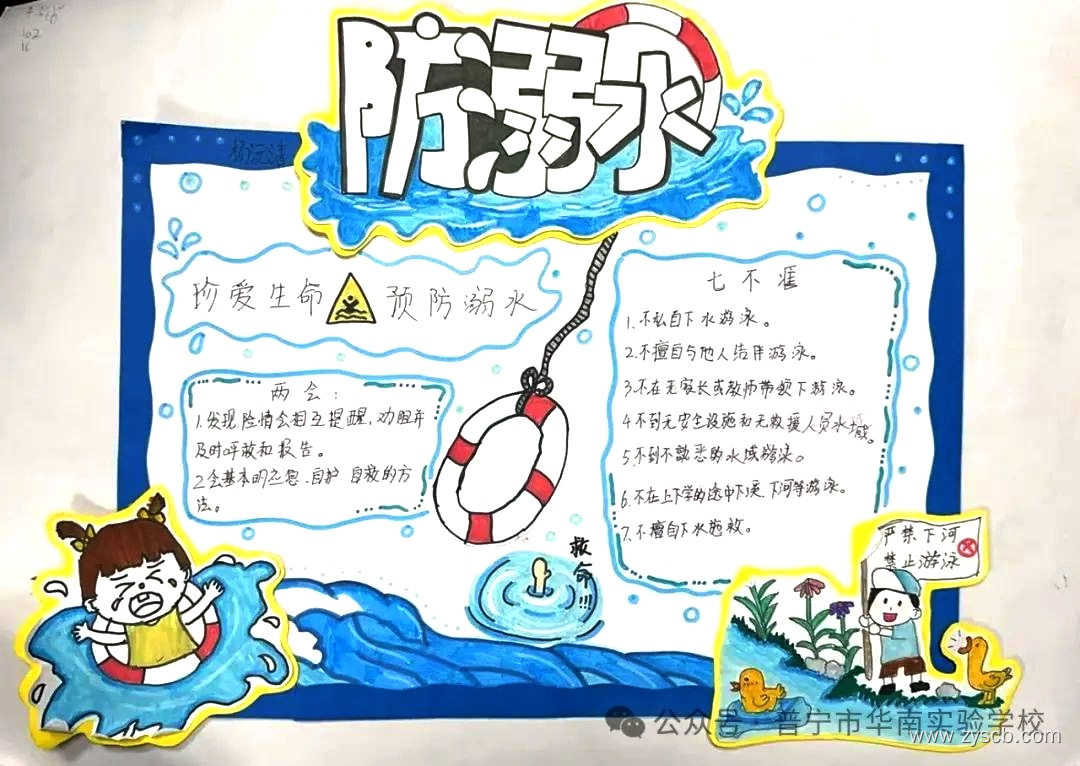 防溺水
102
珍爱生命 预防溺水
两会:
1.发现险情会相互提醒,劝阻并
及时呼救和报告。
2.会基本的
自护 自救的方
法。
七不准
1.不私自下水游泳。
2.不擅自与他人结伴游泳。
3.不在无家长或教师带领下游泳。
4.不到无安全设施和无救援人员水域。
5.不到不熟悉的水域游泳。
6.不在上下学的途中下溪、下河等游泳。
7.不擅自下水施救。
救命!!!
严禁下河
禁止游泳
公众号·普宁市华南实验学校
www.zyscb.com